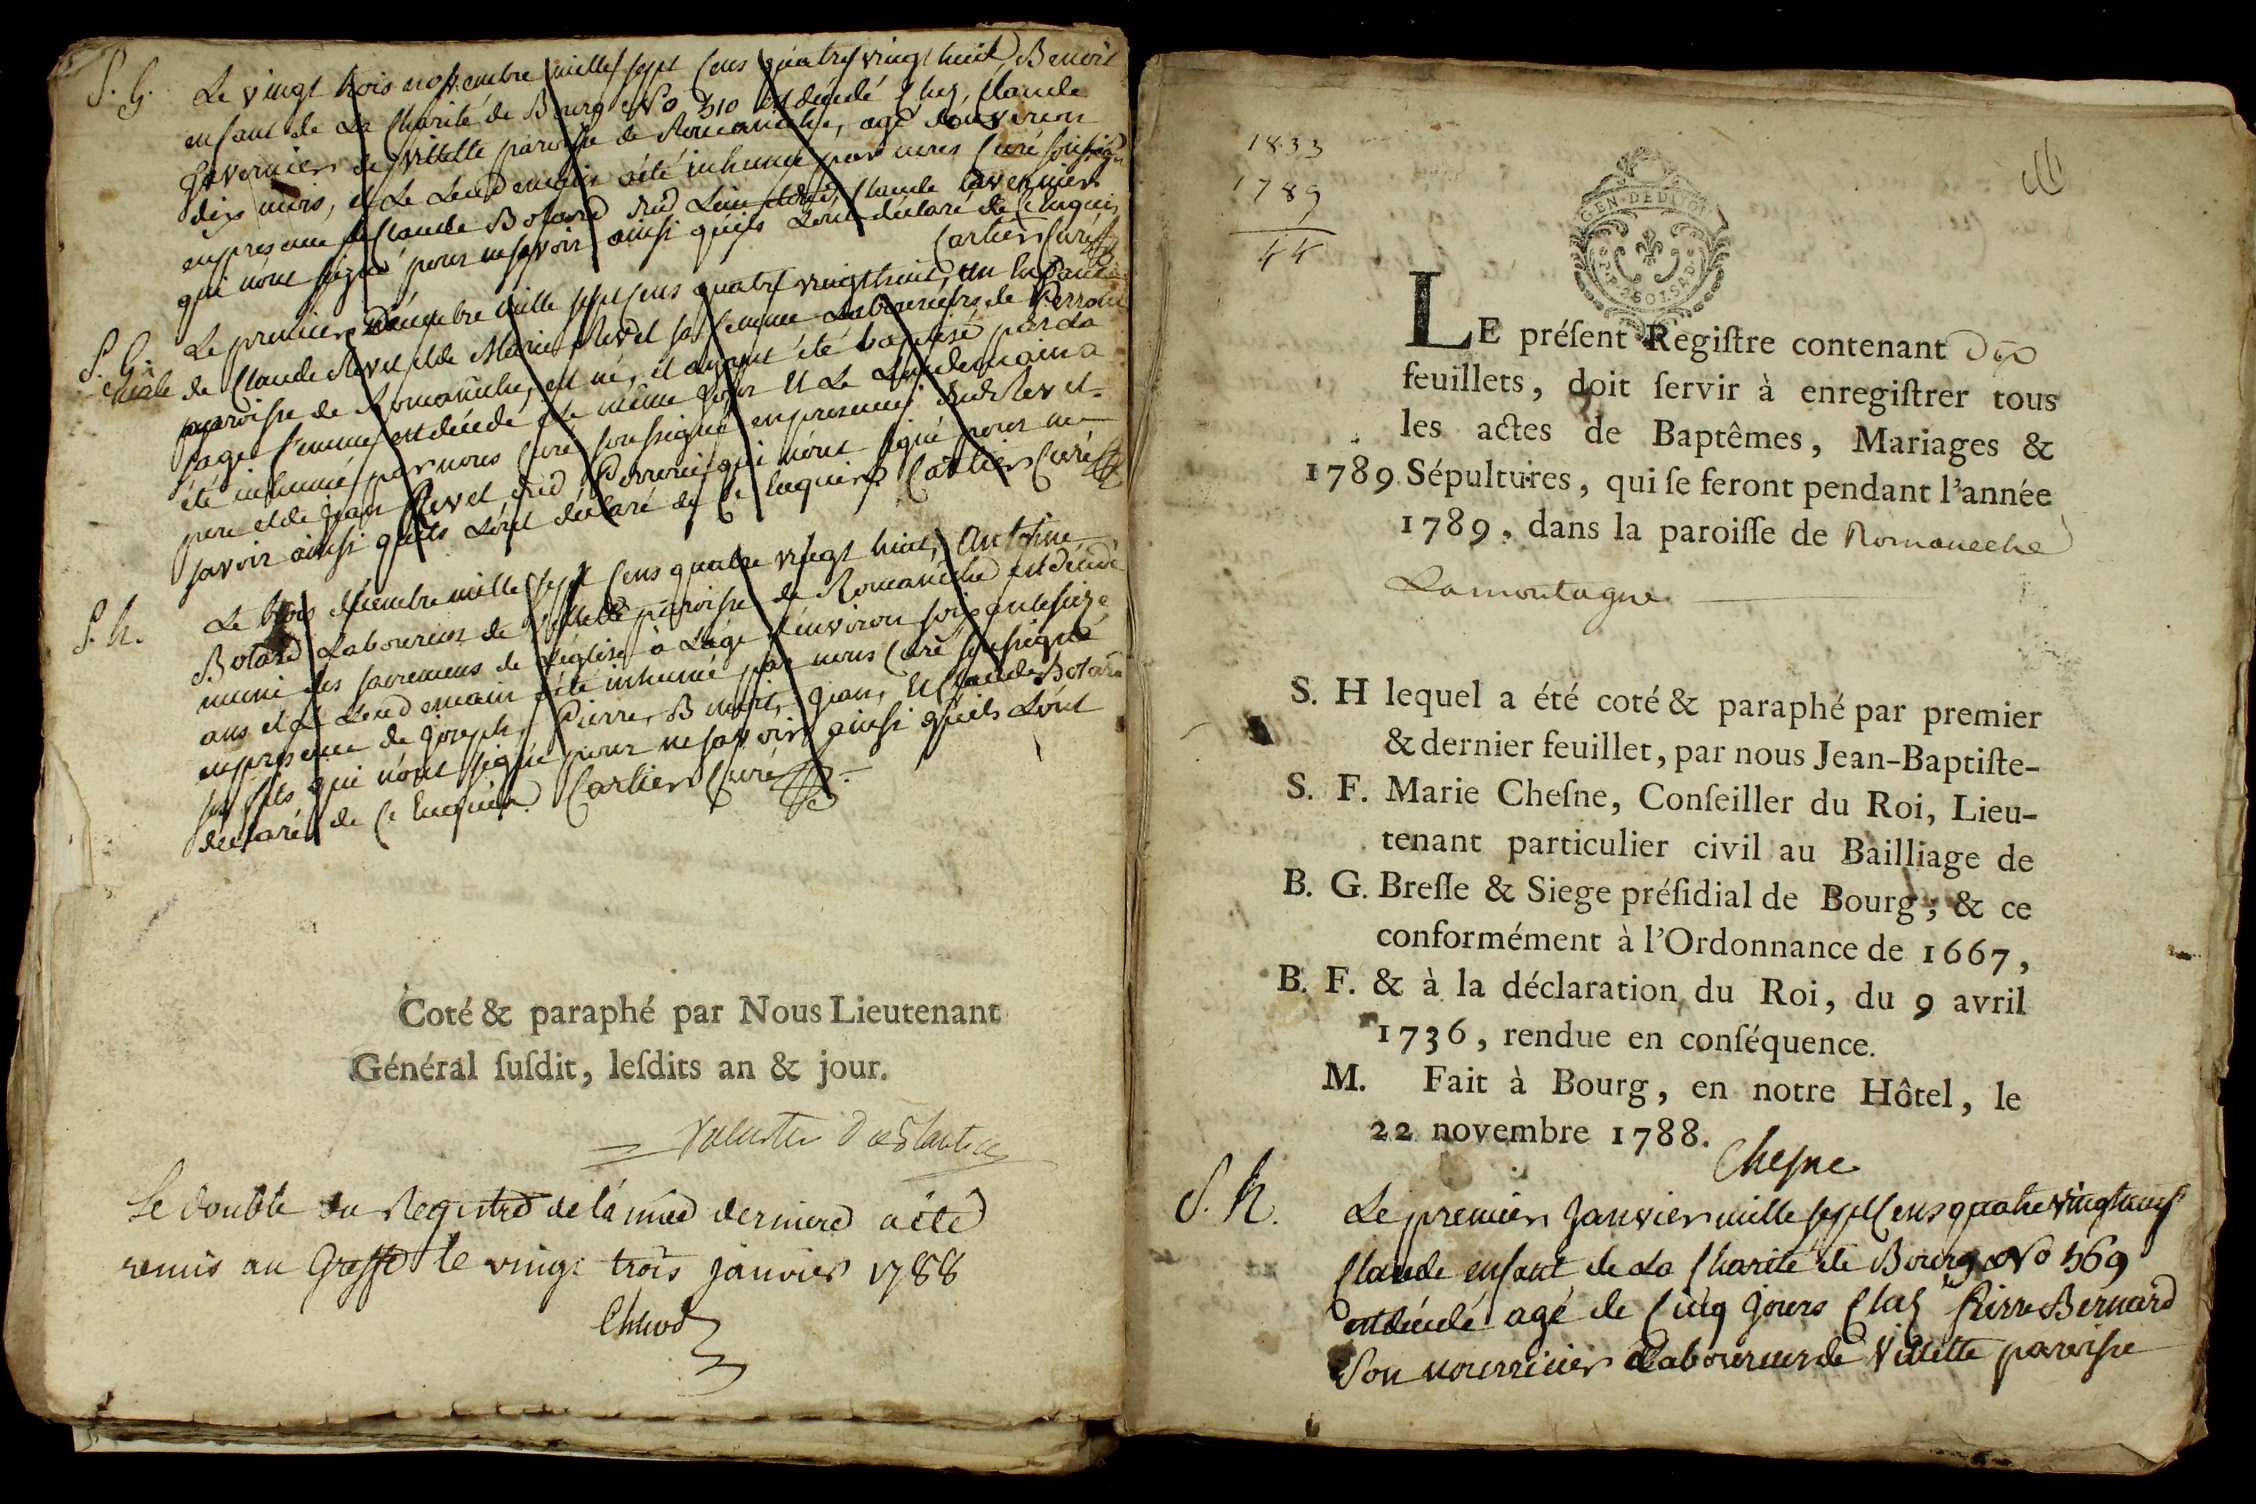 S. G. Le vingt trois novembre mille sept cens quatre vingt huit Benoit
enfant de La Charité de Bourg No 310 est décédé chez Claude
Gavernier de Villette paroisse de Romanêche, agé d'environ
dix mois, et Le Lendemain a été inhumé par nous Curé soussigné
en presence de Claude Botard dud Lieu et dud Claude Gavernier
qui n'ont signé pour ne savoir ainsi qu'ils L'ont déclaré de ce Enquis
Cartier Curé
S. G. Le premier Décembre mille sept cens quatre vingt huit, un Enfant
male de Claude Revel et de Marie Revel sa femme Laboureurs de Perroux
paroisse de Romanêche, est né, et ayant été baptisé par La
sage femme est décédé Le même Jour et Le Lendemain a
été inhumé par nous Curé soussigné en presence dud Revel
pere et de Jean Revel dud Perroux qui n'ont signé pour ne
savoir ainsi qu'ils L'ont déclaré de ce Enquis Cartier Curé
S. h. Le trois décembre mille sept cens quatre vingt huit, Antoine
Botard Laboureur de Villette paroisse de Romanêche est décédé
muni des sacremens de L'église à L'age d'environ soixante seize
ans et Le Lendemain a été inhumé par nous Curé soussigné
en presence de Joseph, Pierre, Benoit, Jean, et Claude Botard
ses fils qui n'ont signé pour ne savoir ainsi qu'ils L'ont
déclaré de ce Enquis Cartier Curé
Coté & paraphé par Nous Lieutenant
Général ſuſdit, leſdits an & jour.
Le double du Registre de l'année derniere a été
remis au Greffe le vingt trois janvier 1788
1833
1789
44
GEN · DE DIJON
LE préſent Regiſtre contenant dix
feuillets, doit ſervir à enregiſtrer tous
les actes de Baptêmes, Mariages &
1789 Sépultures, qui ſe feront pendant l'année
1789, dans la paroiſſe de Romaneche
Lamontagne
S. H lequel a été coté & paraphé par premier
& dernier feuillet, par nous Jean-Baptiſte-
S. F. Marie Cheſne, Conſeiller du Roi, Lieu-
tenant particulier civil au Bailliage de
B. G. Breſſe & Siege préſidial de Bourg; & ce
conformément à l'Ordonnance de 1667,
B. F. & à la déclaration du Roi, du 9 avril
1736, rendue en conſéquence.
M. Fait à Bourg, en notre Hôtel, le
22 novembre 1788.
Chesne
S. h. Le premier Janvier mille sept cens quatre vingt neuf
Claude enfant de La Charité de Bourg No 569
est décédé agé de Cinq Jours Chez Pierre Bernard
Son nourricier Laboureur de Villette paroisse